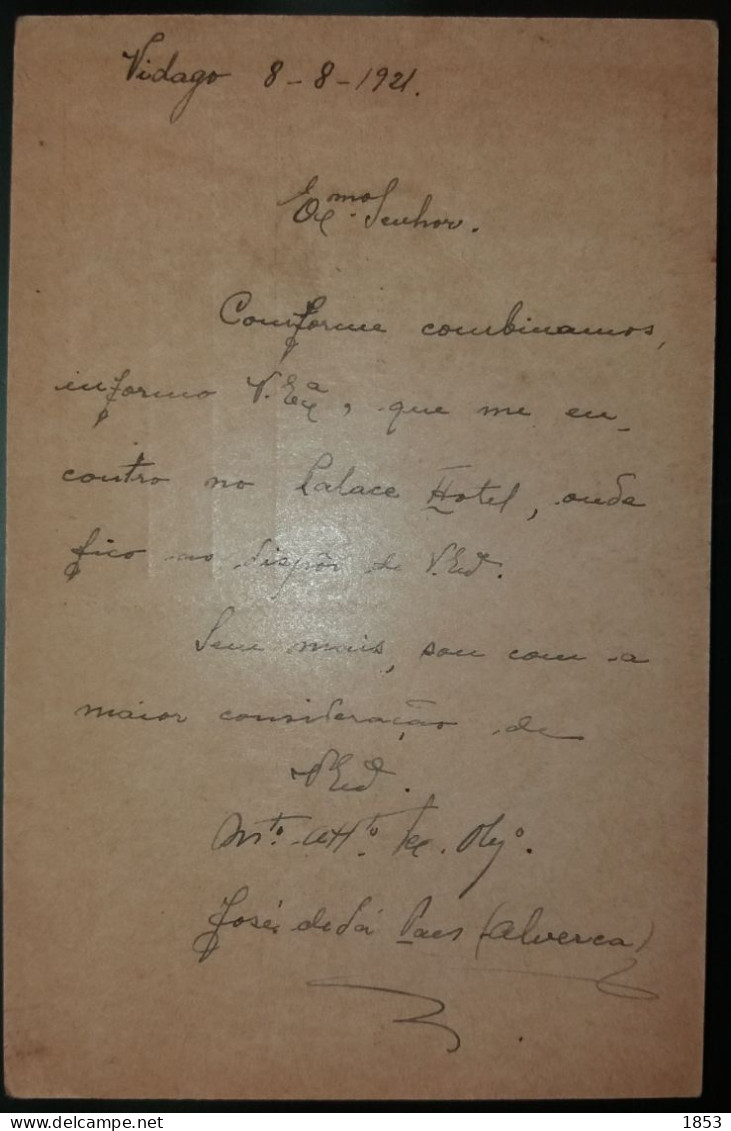 Vidago 8-8-1921.
Exmo. Senhor.
Comforme combinamos,
informo V. Exª, que me en_
contro no Palace Hotel, onde
fico ao dispôr de V. Exª.
Sem mais, sou com a
maior consideração de
V. Exª.
Mto. Atto. Ve. Obgo.
José de Sá Paes (Alverca)
1853